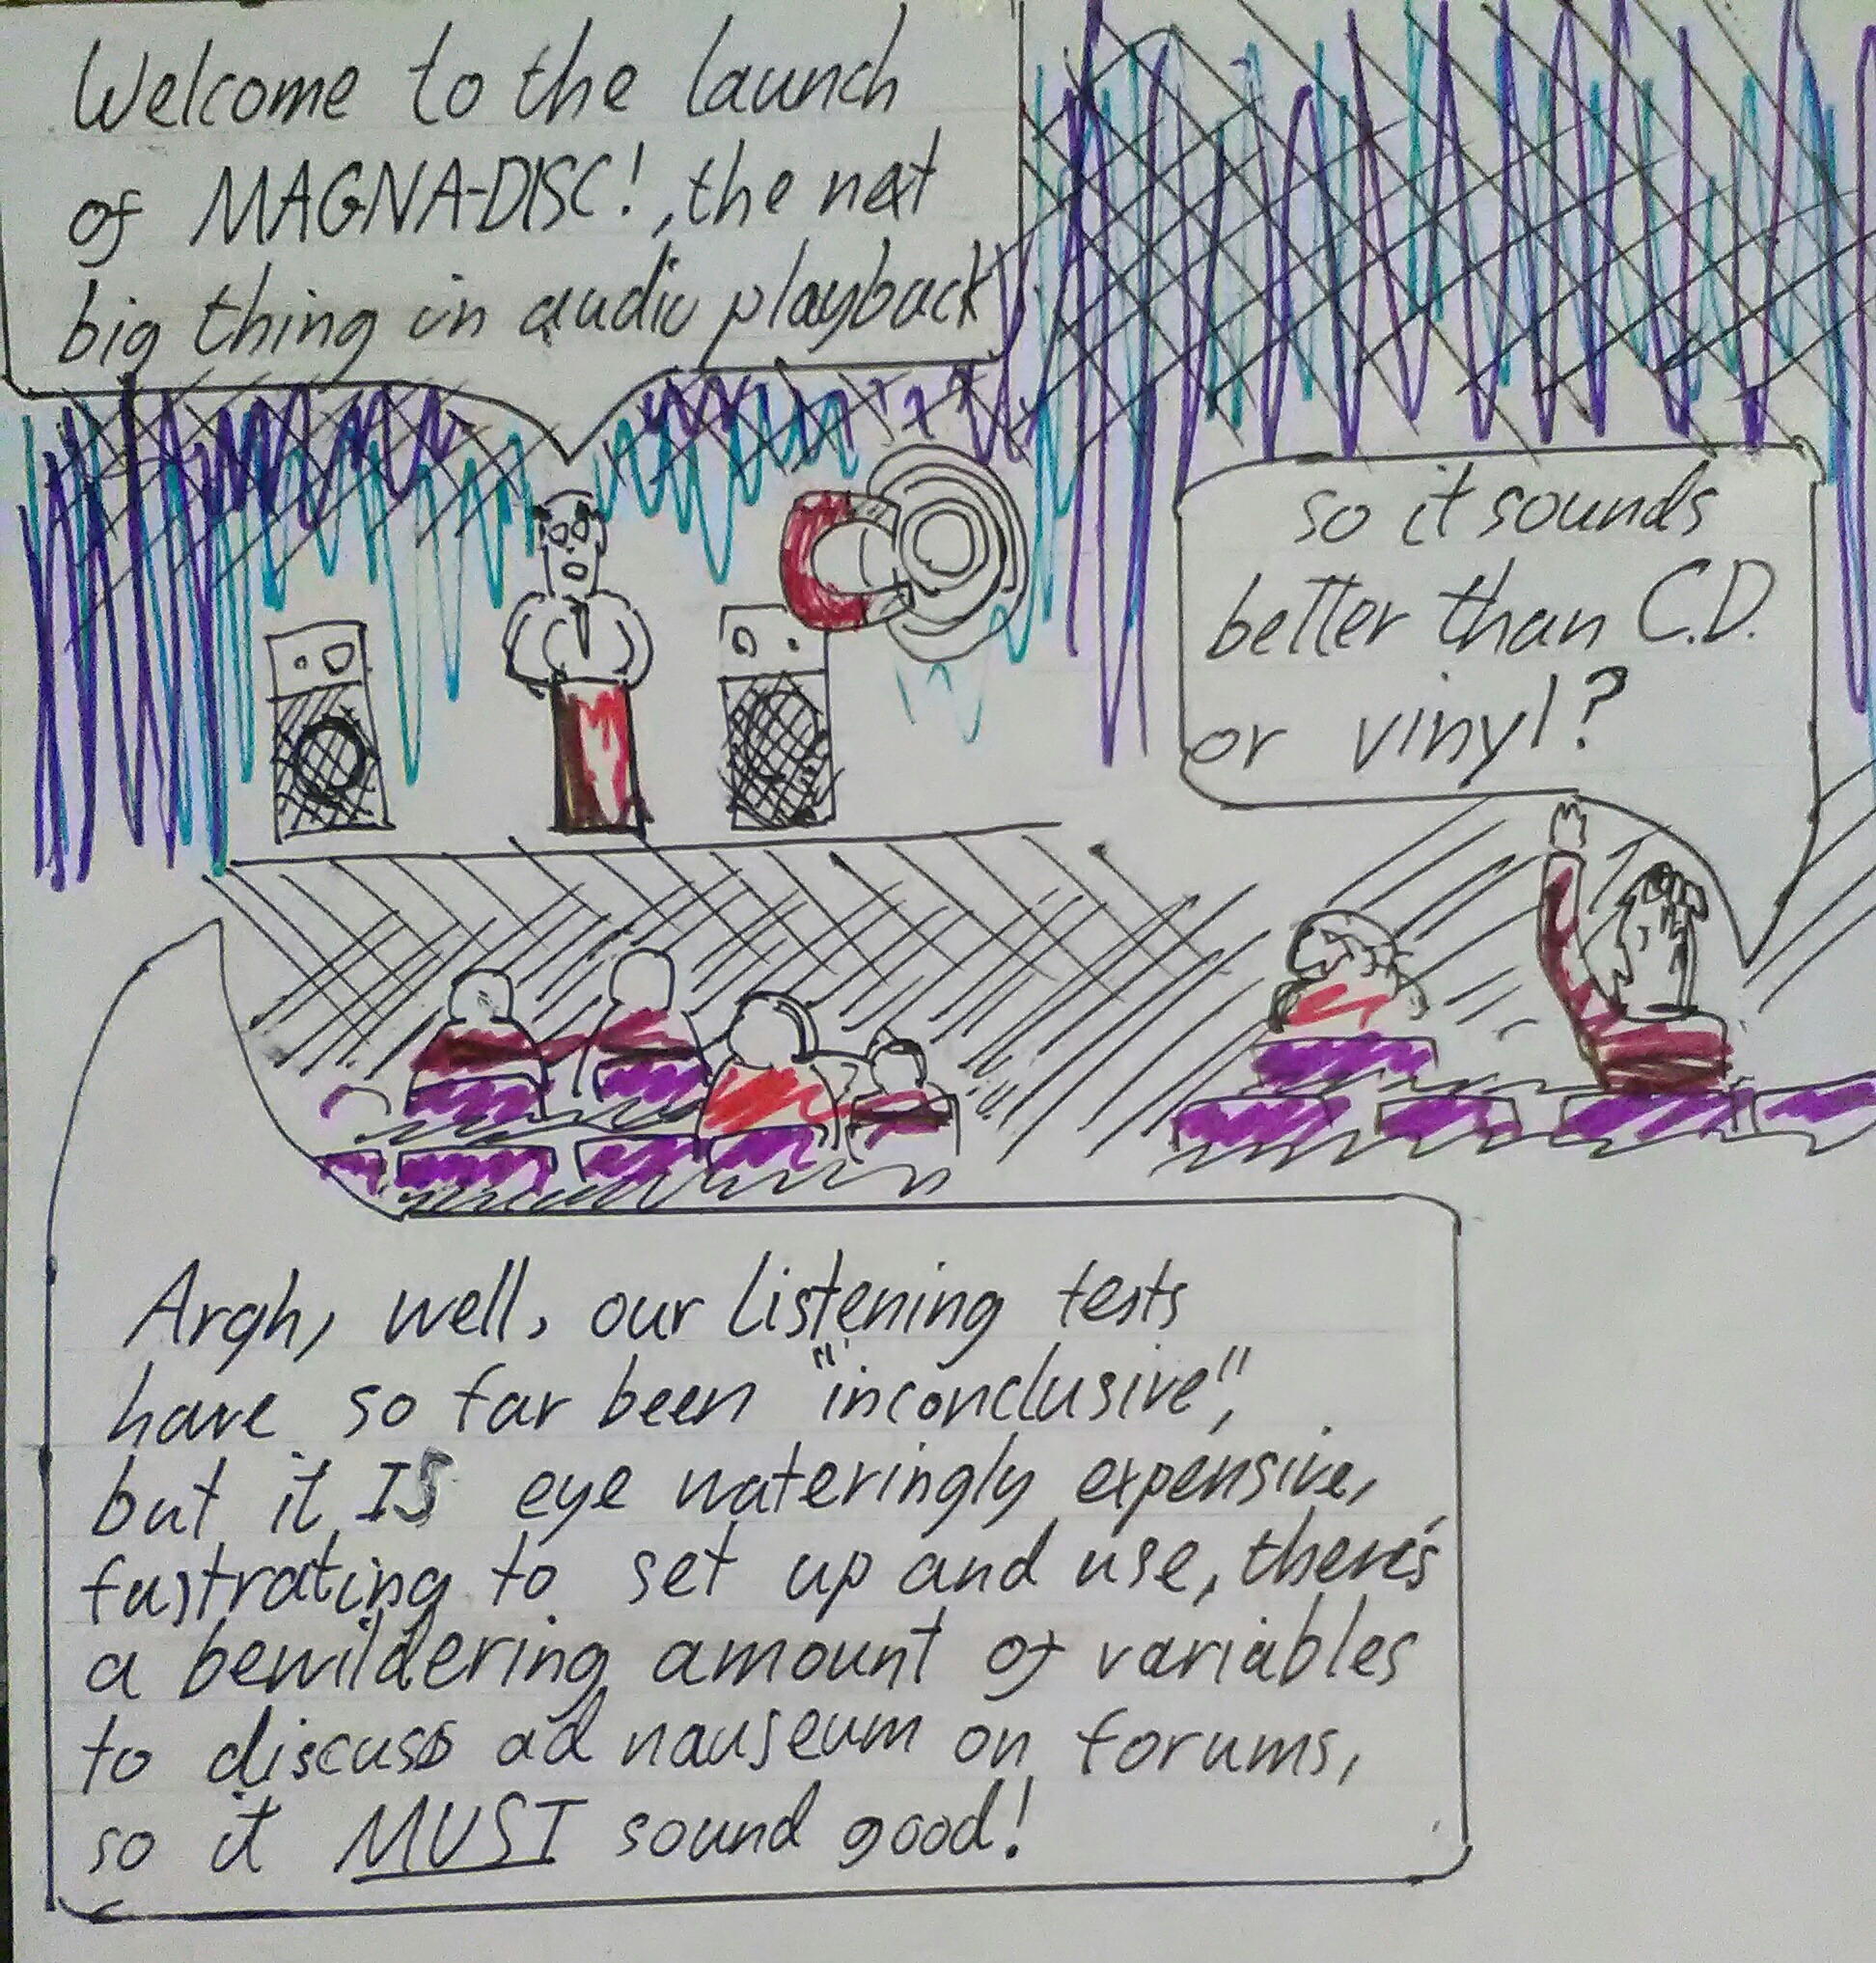 Welcome to the launch
of MAGNA-DISC!, the next
big thing in audio playback
so it sounds
better than C.D.
or vinyl?
Argh, well, our listening tests
have so far been "inconclusive",
but it IS eye wateringly expensive,
fustrating to set up and use, there's
a bewildering amount of variables
to discuss ad nauseum on forums,
so it MUST sound good!